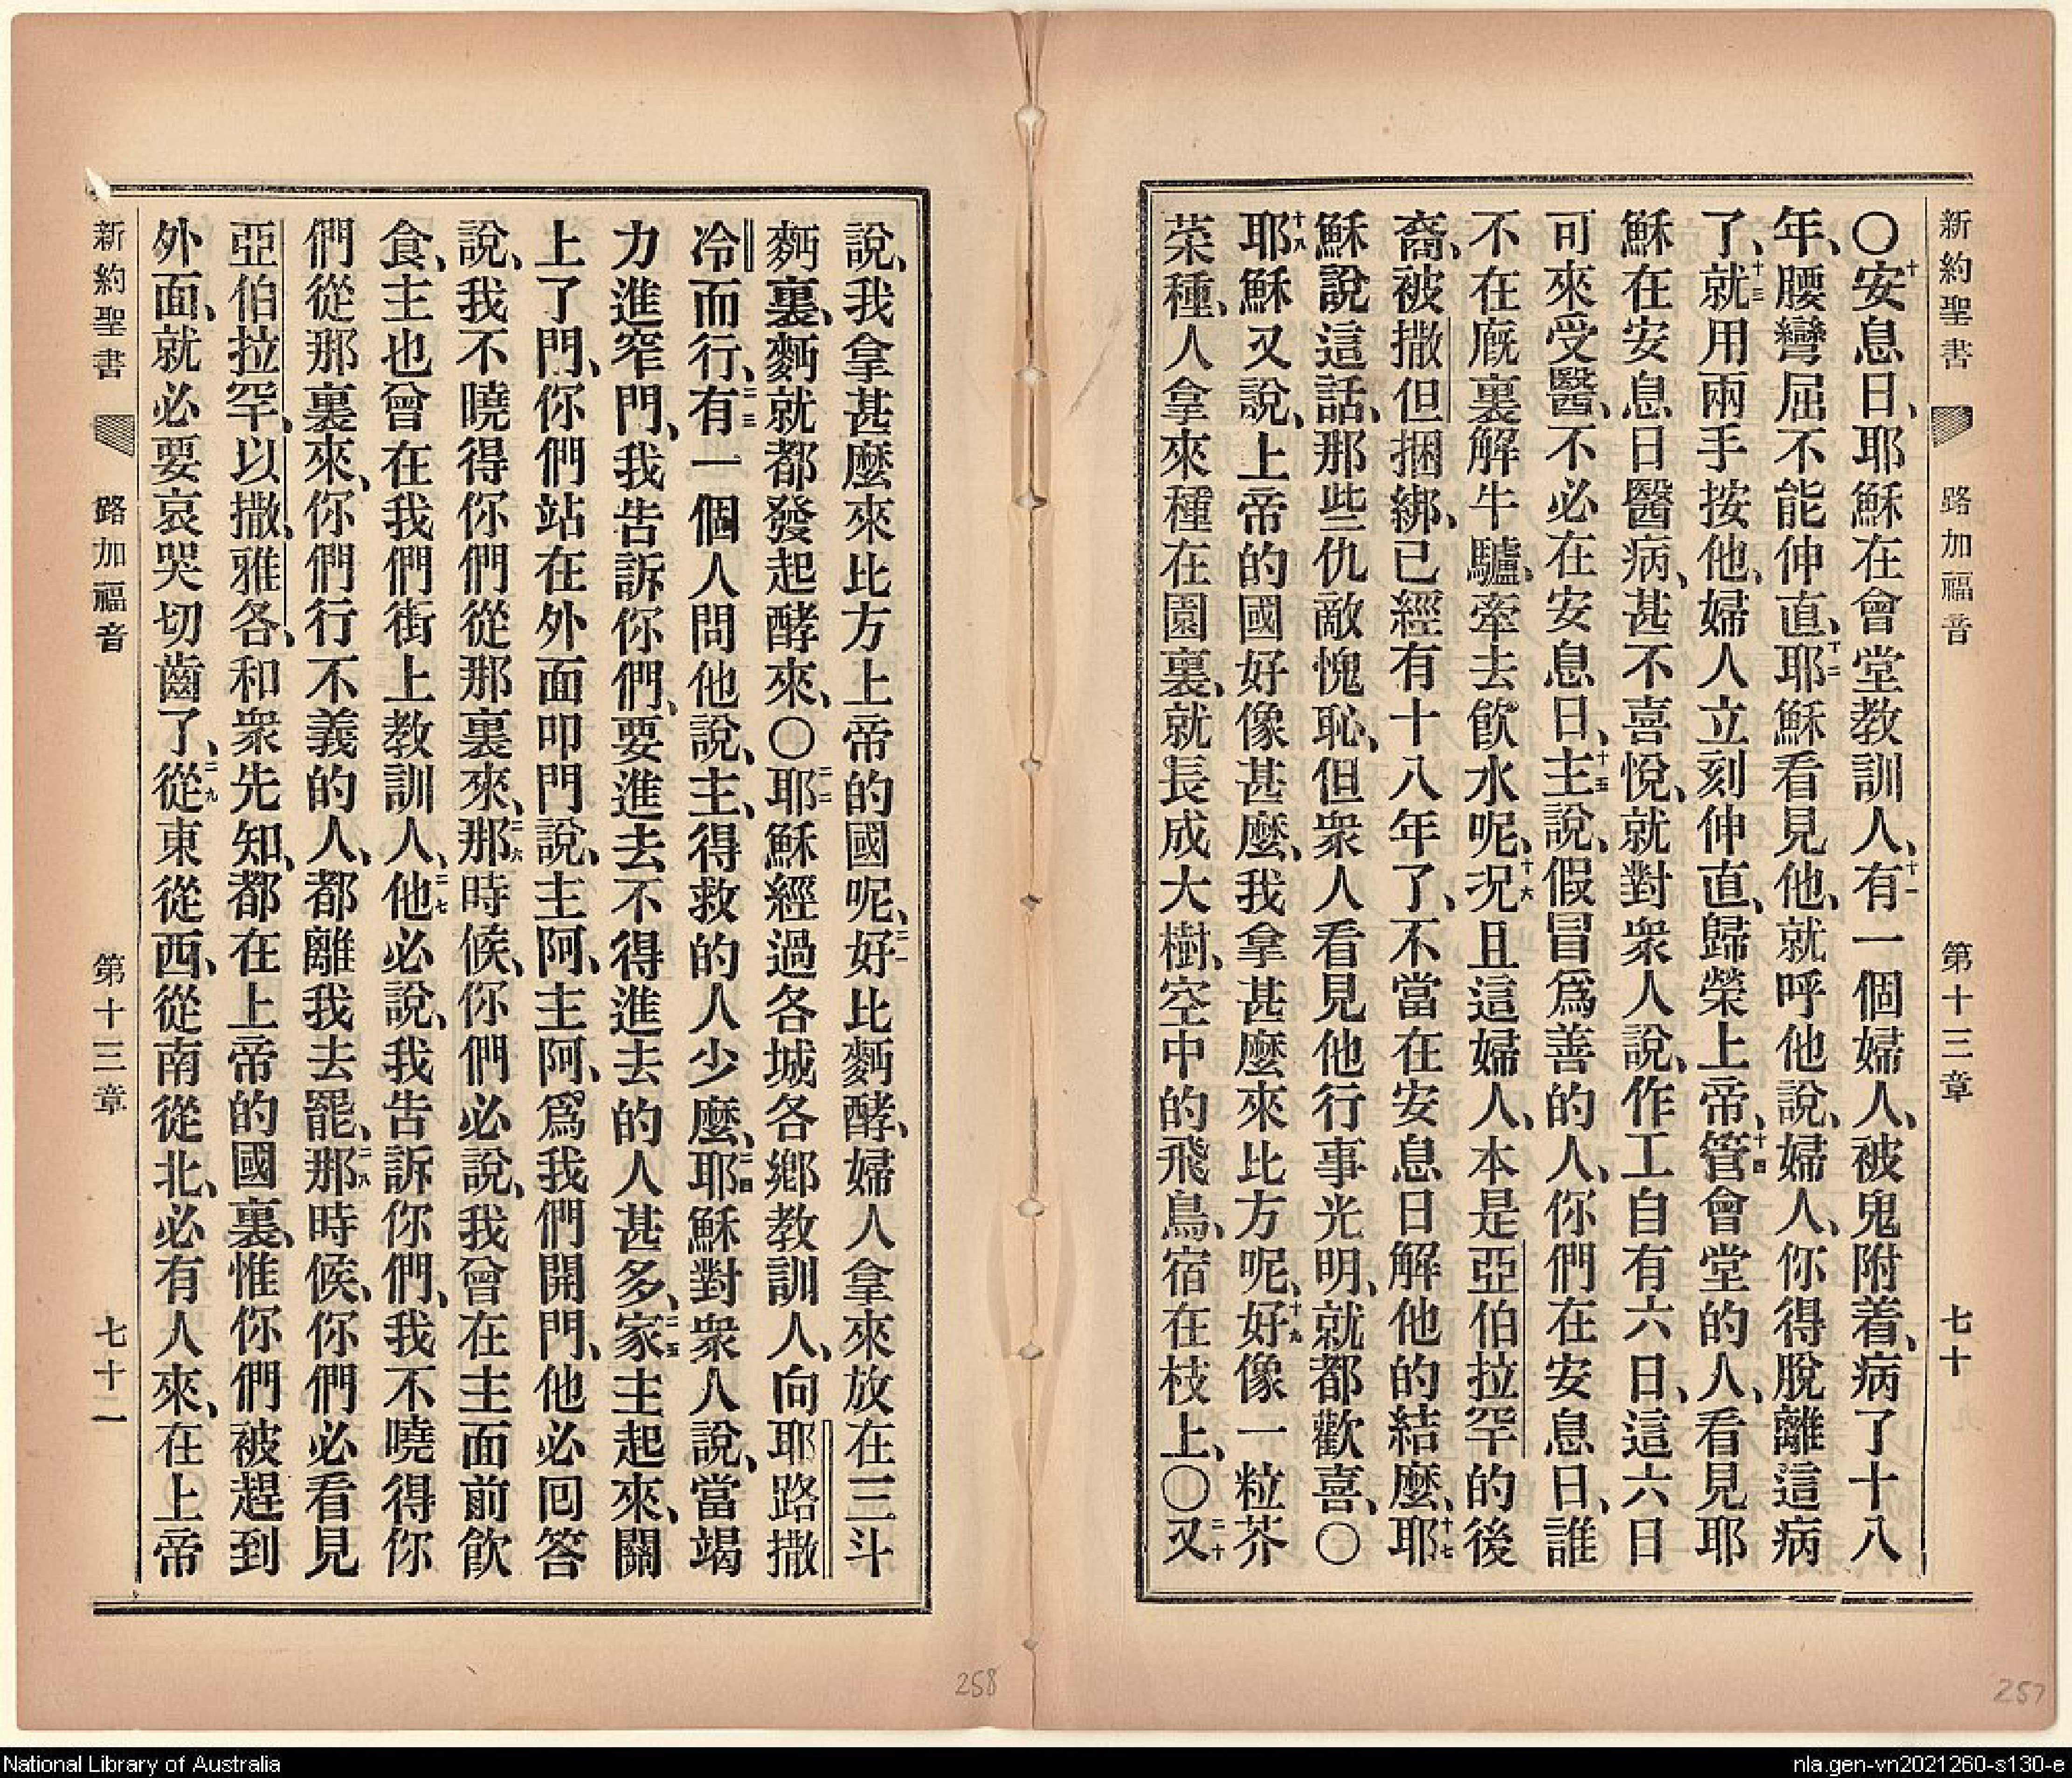 新約聖書 路加福音 第十三章 七十
〇十安息日、耶穌在會堂教訓人、十一有一個婦人、被鬼附着、病了十八
年、腰彎屈不能伸直、十二耶穌看見他、就呼他說、婦人、你得脫離這病
了、十三就用兩手按他、婦人立刻伸直、歸榮上帝、十四管會堂的人、看見耶
穌在安息日醫病、甚不喜悅、就對衆人說、作工自有六日、這六日
可來受醫、不必在安息日、十五主說、假冒爲善的人、你們在安息日、誰
不在廐裏解牛驢、牽去飮水呢、十六况且這婦人、本是亞伯拉罕的後
裔、被撒但捆綁、已經有十八年了、不當在安息日解他的結麼、十七耶
穌說這話、那些仇敵愧恥、但衆人看見他行事光明、就都歡喜、〇
十八耶穌又說、上帝的國好像甚麼、我拿甚麼來比方呢、十九好像一粒芥
菜種、人拿來種在園裏、就長成大樹、空中的飛鳥、宿在枝上、〇二十又
說、我拿甚麼來比方上帝的國呢、二一好比麪酵、婦人拿來放在三斗
麪裏、麪就都發起酵來、〇二二耶穌經過各城各鄕教訓人、向耶路撒
冷而行、二三有一個人問他說、主、得救的人少麼、二四耶穌對衆人說、當竭
力進窄門、我告訴你們、要進去不得進去的人甚多、二五家主起來、關
上了門、你們站在外面叩門說、主阿、主阿、爲我們開門、他必回答
說、我不曉得你們從那裏來、二六那時候、你們必說、我曾在主面前飮
食、主也曾在我們街上教訓人、二七他必說、我告訴你們、我不曉得你
們從那裏來、你們行不義的人、都離我去罷、二八那時候、你們必看見
亞伯拉罕、以撒、雅各、和衆先知、都在上帝的國裏、惟你們被趕到
外面、就必要哀哭切齒了、二九從東從西、從南從北、必有人來、在上帝
新約聖書 路加福音 第十三章 七十一
258
257
National Library of Australia
nla.gen-vn2021260-s130-e